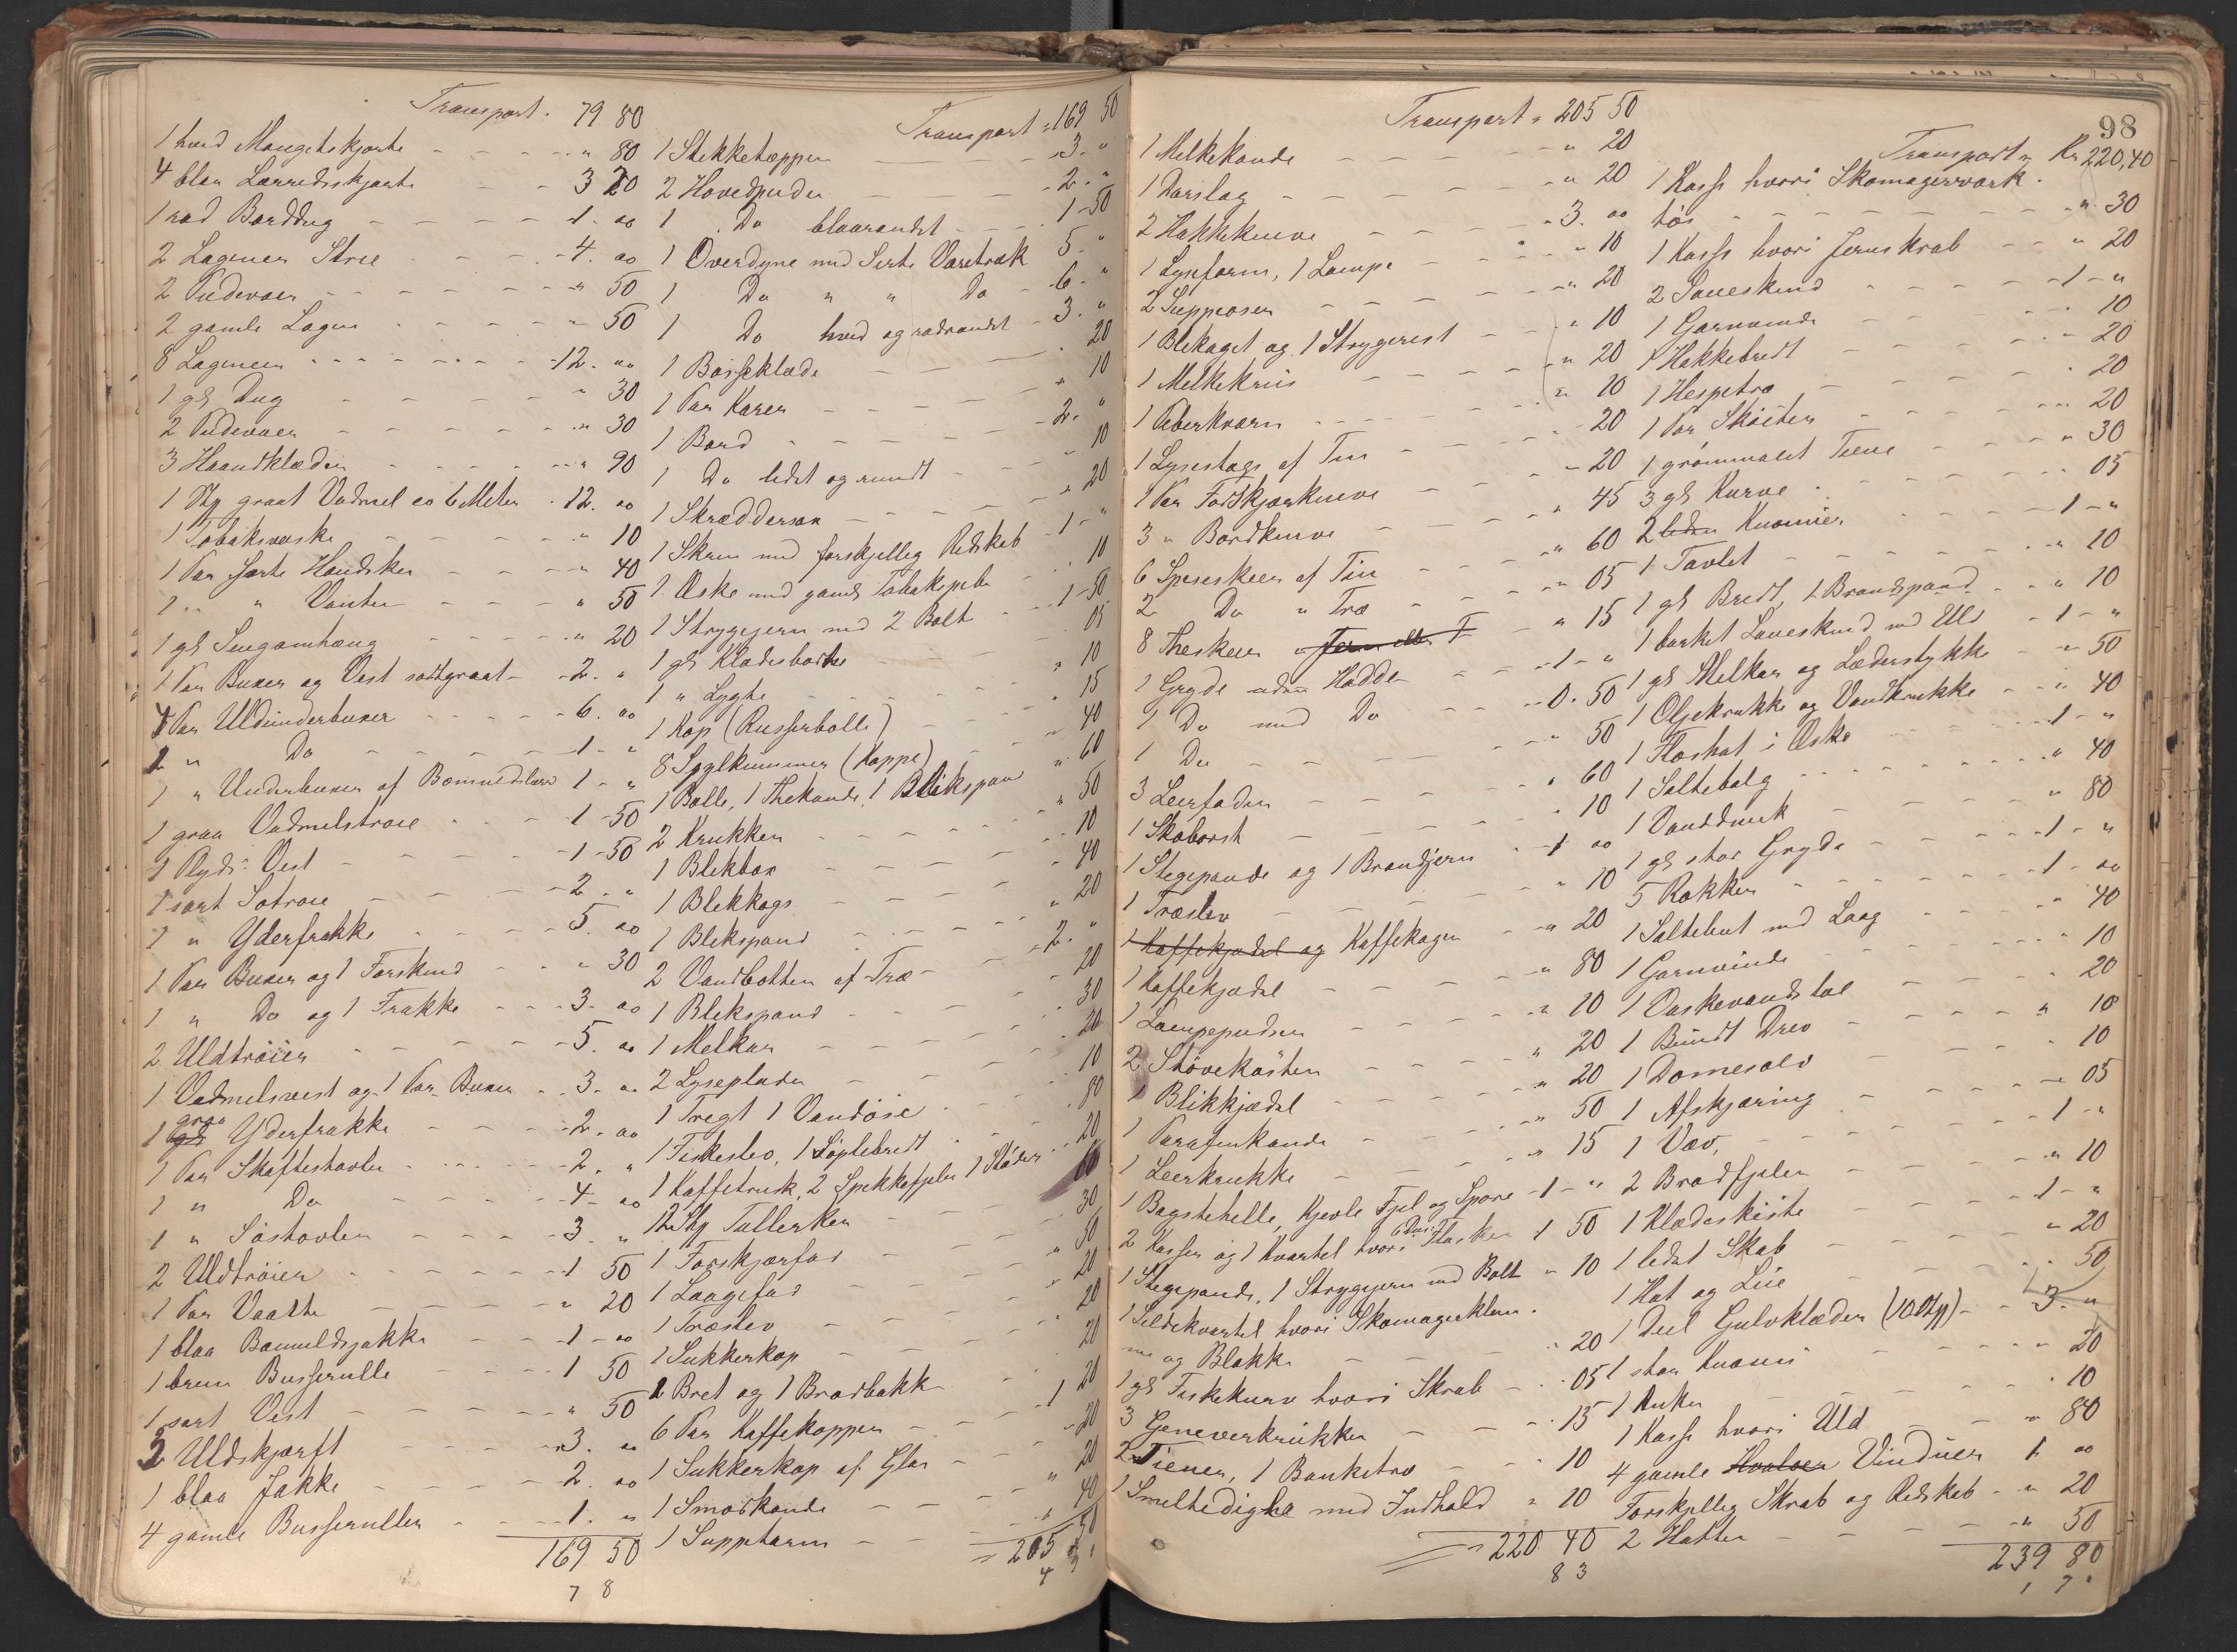 Transport - 79 80
1 hvid Mangetskjorte - - - " 80
4 blaa Lærredsskjorte - - 3 20
1 rød Borddug - - - - 1. 00
2 Lagener Strie - - - 4. 00
2 Pudevaer - - - - " 50
2 gamle Lagen - - - - " 50
8 Lagener - - - - 12. 00
1 gl Dug - - - - " 30
2 Pudevaer - - - - " 30
3 Haandklæder - - - - " 90
1 Stk graat Vadmel ca 6 Meter - 12. 00
1 Tobaksveske - - - " 10
1 Par sorte Handsker - - - " 40
1 " " Vanter - - - " 50
1 gl Sengomhæng - - - " 20
1 Par Buxer og Vest sortgraat - 2. "
4 Par Uldunderbuxer - - - 6. 00
1 " Do - - - 1 - "
1 " Underbuxer af 1 - "
1 graa Vadmelstrøie - - - 1 - 50
1 Vest - - - 1 - 50
1 sort - - - 2. "
1 " Yderfrakke - - - 5. 00
1 Par Buxer og 1 Forskind - - " 30
1 " Do og 1 Frakke - - 3. 00
2 Uldtrøier - - - 5. 00
1 Vadmelsvest og 1 Par Buxer - 3. 00
1 graa Yderfrakke - - - 2. 00
1 Par Skaftestøvler - - - 2. "
1 " Do - - - 4 - 00
1 " Søstøvler - - - 3. "
2 Uldtrøier - - - 1 50
1 Par - - - " 20
1 blaa Bomuldsjakke - - 1 - 00
1 brun Busserulle - - 1 50
1 sort Vest - - - " 50
2 Uldskjørft - - - 3. 00
1 blaa Jakke - - - 2. 00
4 gamle Busseruller - - - 1. "
169 50
7 8
Transport = 169 50
1 Stikketæppe - - 3. "
2 Hovedpuder - - 2. "
1 Do blaarandet - - 1 - 50
1 Overdyne med Sirts Varetræk 5. "
1 Do " " Do - 6. "
1 Do hvid og rødrandet - 3. "
1 Bosseklæde - - 20
1 Par Karer - - " 10
1 Bord - - - 2. "
1 Do lidet og rundt - - " 10
1 Skræddersax - - - " 20
1 Skrin med forskjellig Redskab - 1 - "
1 Æske med gamle Tobakspiber - " 10
1 Strygejern med 2 Bolt - 1 - 50
1 gl Klædesbørste - - 05
1 " Lygte - - - " 10
1 Kop (Russerbolle) - - " 15
8 Spylkummer (Koppe) - - " 40
1 Bolle, 1 Thekande, 1 Blikspan " 60
2 Krukker - - - " 50
1 Blikbox - - - 10
1 Blekkogs - - - " 40
1 Blikspand - - - " 20
2 Vandbøtter af Træ - - 2. "
1 Blikspand - - 20
1 Melkar - - - 30
2 Lyseplader - - 20
1 Tregt 1 Vandøse - - 10
1 Fiskeslev, 1 - - 80
1 Kaffetrusk, 2 Spekkefjeler 1 Støder 20
12 Stk Tallerker - - 60
1 Forskjærfad - - 30
1 Laagefad - - " 50
1 Træslev - - - 20
1 Sukkerkop - - 20
1 Bret og 1 Brødbakk - - 20
6 Par Kaffekopper - - 1 20
1 Sukkerkop af Glas - - 20
1 Smørkande - - - " 20
1 Suppeterrin - - 40
= 205 50
Transport = 205 50
1 Melkekande - - - " 20
1 Dørslag - - - " 20
2 Hakkeknive - - - 3. 00
1 Lyseform, 1 Lampe - - " 10
2 Suppeøser - - - " 20
1 Blikaget og 1 Strygerist - - " 10
1 Melkekrus - - - " 20
1 Peberkværn - - - " 10
1 Lysestage af Tin - - - 20
1 Par Forskjærknive - - - 20
3 " Bordknive - - - " 45
6 Spiseskeer af Tin - - " 60
2 Do " Træ - - - " 05
8 Theskeer " Jern eller T - " 15
1 Gryde uden Hadde - - 1 - "
1 Do med Do - - 0. 50
1 Do - - - " 50
3 Leerfader - - - " 60
1 Skobørst - - - " 10
1 Stegepande og 1 Brandjern - 1 00
1 Træslev - - - " 10
1 Kaffekjedel og Kaffekagen - " 20
1 Kaffekjedel - - - " 80
1 Lampepudser - - - " 10
2 Støvekoster - - - " 20
1 Blikkjedel - - - " 20
1 Parafinkande - - - " 50
1 Leerkrukke - - - " 15
1 Bagstehelle, Kjevle Fjel og Spøre - 1 - "
2 Kasser og 1 Kvartel hvori 6 Dus: Flasker 1 50
1 Stegepande, 1 Strygejern med Bolt - 10
1 Sildekvartel hvori Skomagerklem-
me og Blokke - - - " 20
1 gl Fiskekurv hvori Skrab - - 05
3 Geneverkrukker - - - 15
2 Tiener, 1 Banketræ - - 10
1 Smeltedigle med Indhold " 10
= 220 40
8 3
98
Transport = Kr 220,40
1 Kasse hvori Skomagerværk-
tøi - - - " 30
1 Kasse hvori Jernskrab - - " 20
2 Saueskind - - - 1 - "
1 Garnvinde - - - 10
1 Hakkebredt - - - " 20
1 Hespetræ - - - " 20
1 Par Skøiter - - - " 20
1 grønmalet Tiene - - - " 30
3 gl Kurve - - - 05
2 liden Kvarnier - - 1 - "
1 Tavlet - - - " 10
1 gl Bredt, 1 Brandspand - - " 10
1 barket Saueskind md Uld - 1 - "
1 gl Melkar og Læderstykke - " 50
1 Oljekrukke og Vandkrukke - " 40
1 Floshat i Æske - - 1 - "
1 Saltebalg - - - " 40
1 Vanddunk - - - " 80
1 gl stor Gryde - - - 1 - "
5 Rokker - - - 1 - 00
1 Saltebut med Laag - - " 40
1 Garnvinde - - - " 10
1 Vaskevandstol - - - " 20
1 Bundt Drev - - - " 10
1 Domesølv - - - 10
1 Afskjæring - - - 05
1 Væv, - - - 1 - "
2 Brødfjeler - - - " 10
1 Klædeskiste - - - 1 - "
1 lidet Skab - - - " 20
1 Hat og Lue - - - 50
1 Deel Gulvklæder (10 Stk) - 3 - "
1 stor - - - 20
1 Anker - - - 10
1 Kasse hvori Uld - - " 80
4 gamle Hvalver Vinduer 1. 00
Forskjellig Skrab og Redskab - " 20
2 Hatter - - - " 50
239 80
1 7